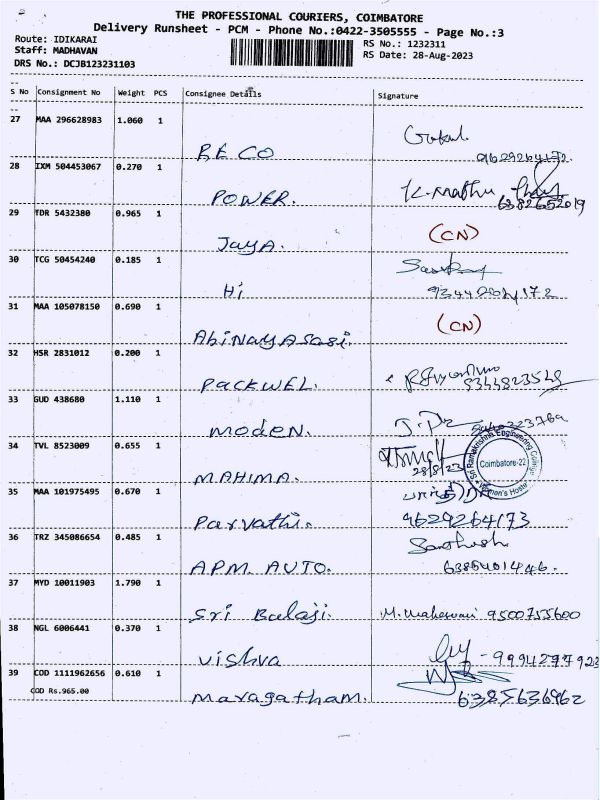 THE PROFESSIONAL COURIERS, COIMBATORE
Delivery Runsheet - PCM - Phone No.:0422-3505555 - Page No.:3
Route: IDIKARAI RS No.: 1232311
Staff: MADHAVAN RS Date: 28-Aug-2023
DRS No.: DCJB123231103
S No Consignment No Weight PCS Consignee Details Signature
27 MAA 296628983 1.060 1
RECO Gokul
28 IXM 504453067 0.270 1
POWER. K. Mathu 6382652019
29 TDR 5432380 0.965 1
Jaya. (CN)
30 TCG 50454240 0.185 1
Hi
31 MAA 105078150 0.690 1
AbiNayAsasi. (CN)
32 HSR 2831012 0.200 1
PACKWEL.
33 GUD 438680 1.110 1
moden.
34 TVL 8523009 0.655 1
MAHIMA. 28/8/23
Sri Ramakrishna Engineering College
Coimbatore-22
Women's Hostel
35 MAA 101975495 0.670 1
Parvathi. 9629264173
36 TRZ 345086654 0.485 1
APM. AUTO. Santhosh
37 MYD 10011903 1.790 1
Sri Balaji. M. Maheswari 9500755600
38 NGL 6006441 0.370 1
Vishva
39 COD 1111962656 0.610 1
COD Rs.965.00
Maragatham. 6385636962